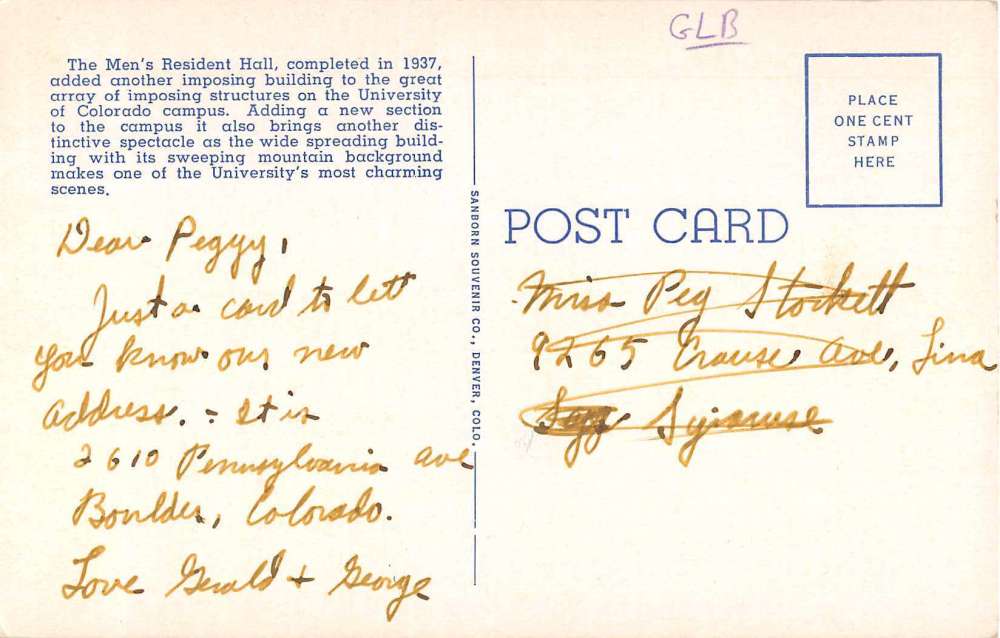 GLB
The Men's Resident Hall, completed in 1937,
added another imposing building to the great
array of imposing structures on the University
of Colorado campus. Adding a new section
to the campus it also brings another dis-
tinctive spectacle as the wide spreading build-
ing with its sweeping mountain background
makes one of the University's most charming
scenes.
Dear Peggy,
Just a card to lett
you know our new
address. - It is
2610 Pennsylvania ave
Boulder, Colorado.
Love Gerald + George
SANBORN SOUVENIR CO., DENVER, COLO.
PLACE
ONE CENT
STAMP
HERE
POST CARD
Miss Peg Stockett
9265 Crouse Ave, Lima
Syracuse